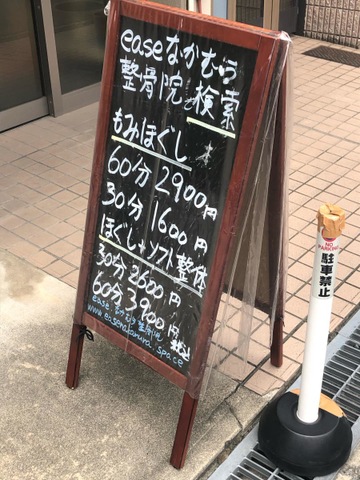 easeなかむら
整骨院 検索
もみほぐし
60分 2900円
30分 1600円
ほぐし+ソフト整体
30分 2600円
60分 3900円 税込
ease なかむら整骨院
www.easenakamura.space
NO
PARKING
駐車禁止